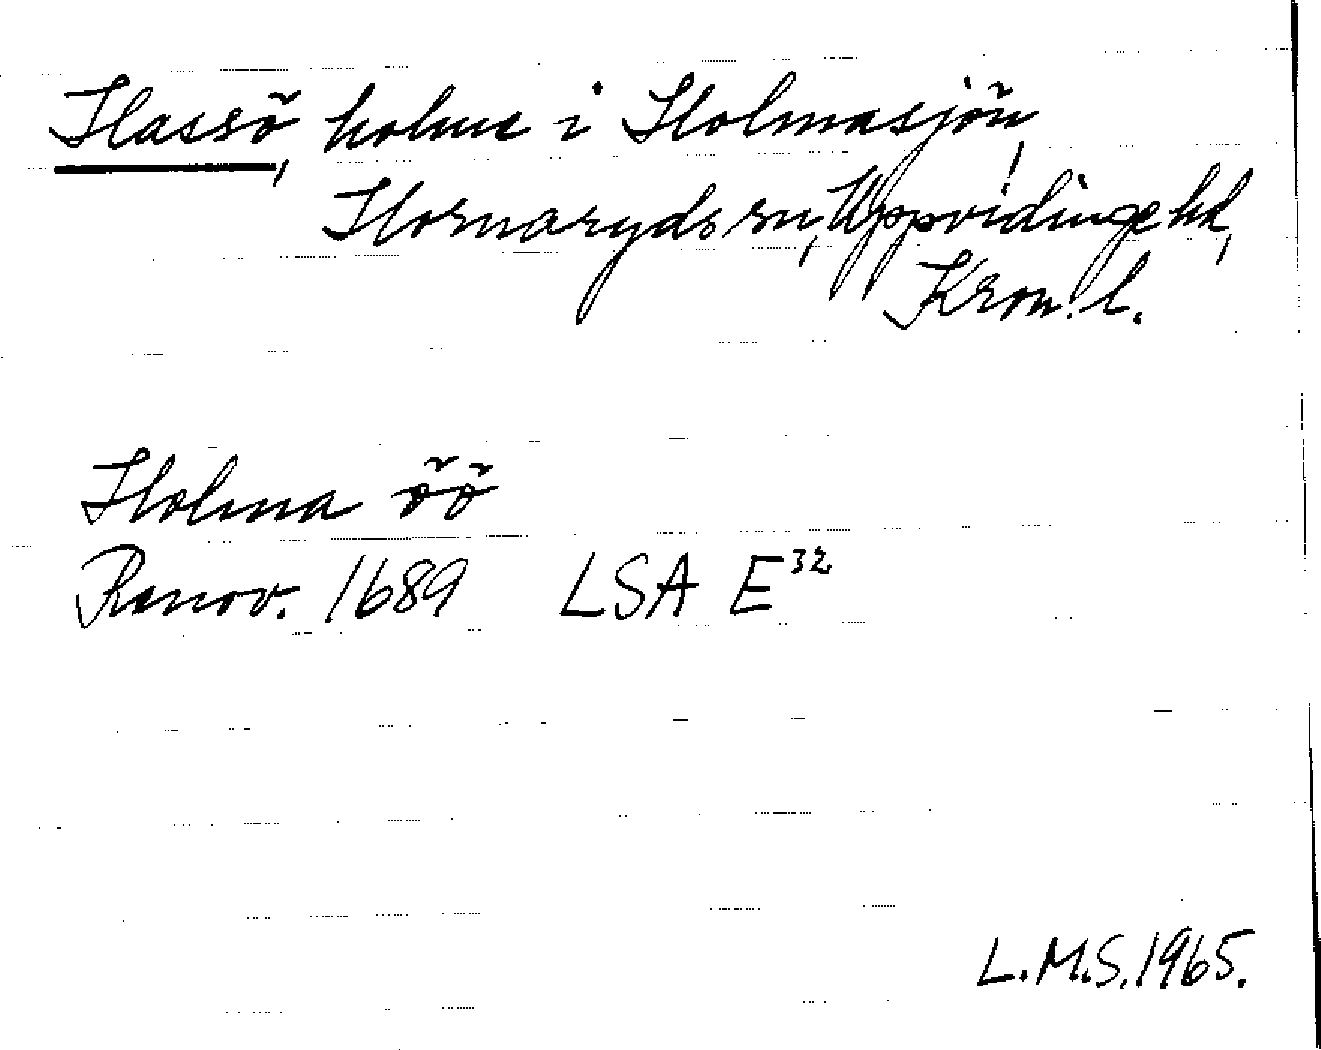 Hassö, holme i Holmasjön,
Hornaryds sn, Uppvidinge hd,
Kron. l.
Holma öö
Renov. 1689 LSA E32
L.M.S. 1965.